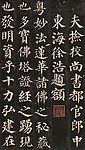 大捡挍尚書都官郎中
東海徐浩題額
粤妙法蓮華諸佛之秘藏
也多寶佛塔證經之踴現
也發明資乎十力弘建在